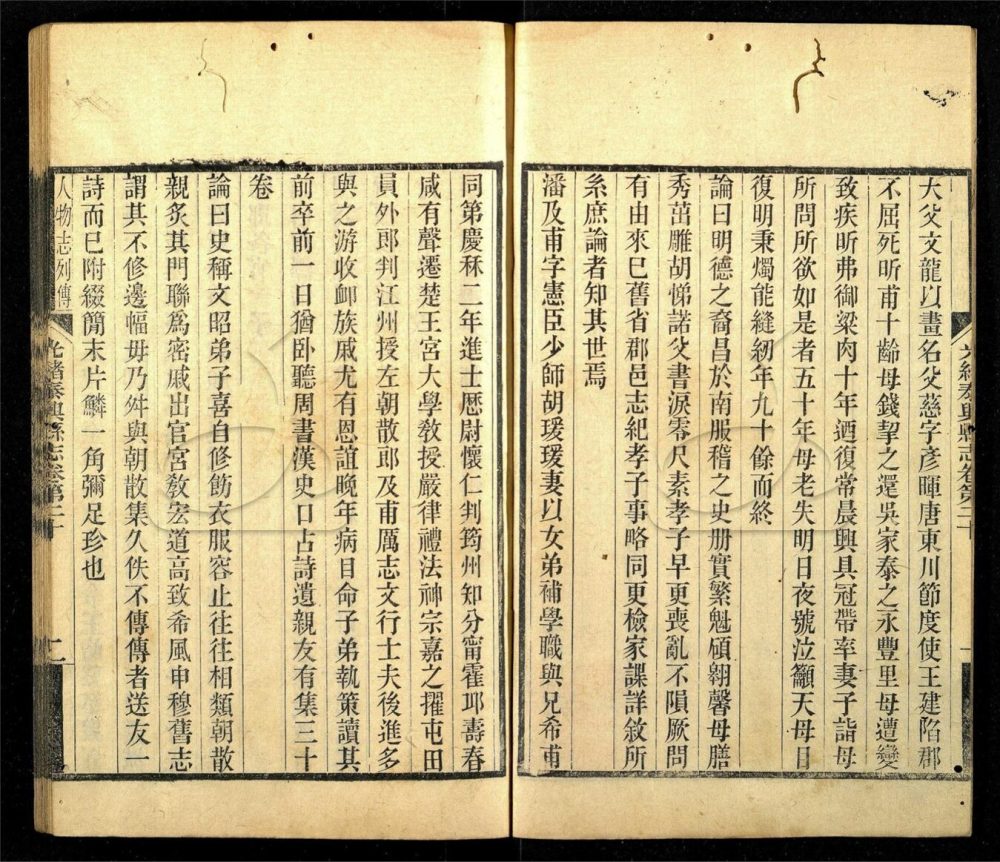 大父文龍以畫名父慈字彥暉唐東川節度使王建陷郡
不屈死昕甫十齡母錢挈之還吳家泰之永豐里母遭變
致疾昕弗御粱肉十年迺復常晨興具冠帶率妻子詣母
所問所欲如是者五十年母老失明日夜號泣籲天母目
復明秉燭能縫紉年九十餘而終
論曰明德之裔昌於南服稽之史册實繁魁碩翱馨母膳
秀茁雕胡悌諾父書淚零尺素孝子早更喪亂不隕厥問
有由來已舊省郡邑志紀孝子事略同更檢家諜詳敘所
系庶論者知其世焉
潘及甫字憲臣少師胡瑗瑗妻以女弟補學職與兄希甫
光緒泰興縣志卷第二十
一
同第慶秝二年進士歷尉懷仁判筠州知分甯霍邱壽春
咸有聲遷楚王宮大學敎授嚴律禮法神宗嘉之擢屯田
員外郎判江州授左朝散郎及甫厲志文行士夫後進多
與之游收卹族戚尤有恩誼晚年病目命子弟執策讀其
前卒前一日猶卧聽周書漢史口占詩遺親友有集三十
卷
論曰史稱文昭弟子喜自修飭衣服容止往往相類朝散
親炙其門聯爲密戚出官宮敎宏道高致希風申穆舊志
謂其不修邊幅毋乃舛與朝散集久佚不傳傳者送友一
詩而已附綴簡末片鱗一角彌足珍也
人物志列傳
光緒泰興縣志卷第二十
二